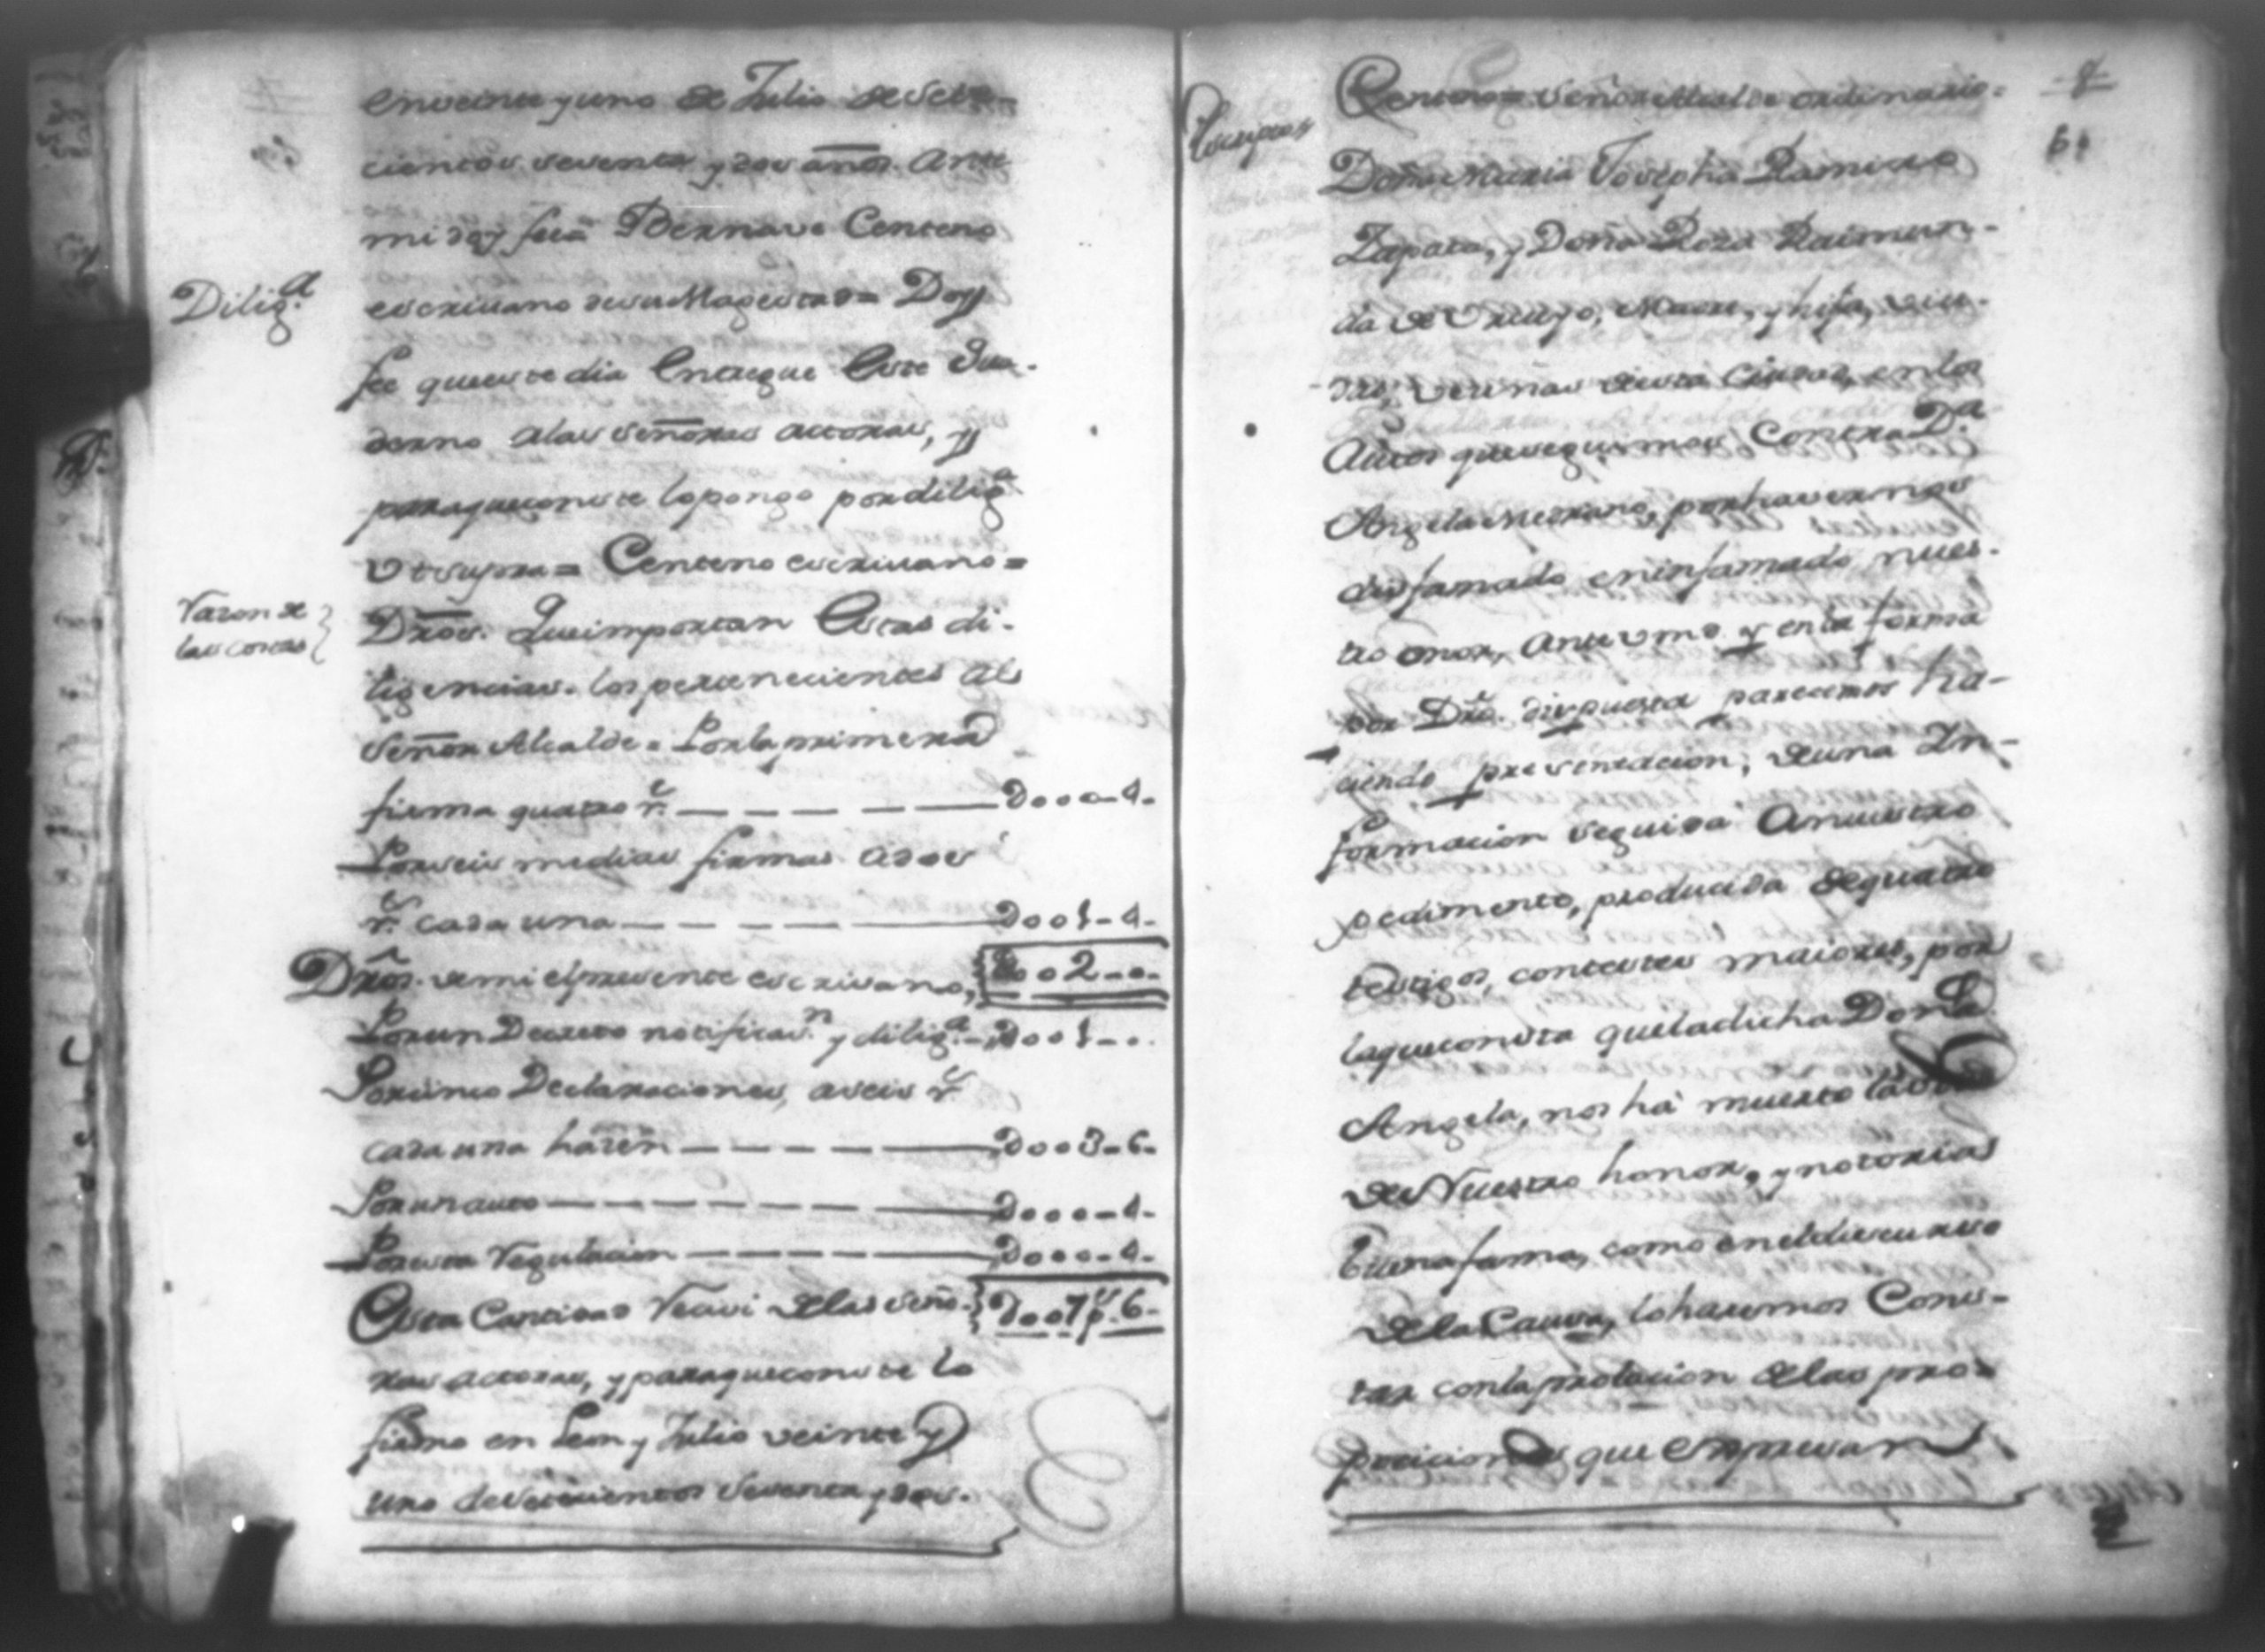 en veinte y uno de Julio de sete-
cientos sesenta y dos años. Ante
mi doy feeã Bernave Centeno
Dilig.ᵃ escrivano de su Magestad = Doy
fee que este dia Entregue Este Qua-
derno a las señoras actoras, y
para que conste lo pongo por dilig.ᵃ
Vt supra = Centeno escrivano =
Razon de las costas
Dr̃os. Que importan Estas di-
ligencias. los pertenecientes al
Señor Alcalde = Por la primera
firma quatro r.ˢ — D000-4-
Por seis medias firmas a dos
r.ˢ cada una — D001-4-
Dr̃os. de mi el presente escrivano, D002-0-
Por un Decreto notificas.ⁿ y dilig.ᵃ - D001-0.
Por cinco Declaraciones, a seis r.ˢ
cada una hazen — D003-6-
Por un auto — D000-4-
Por esta Regulacion — D000-4-
Esta Cantidad Recivi de las seño- D007p.ˢ6-
ras actoras, y para que conste lo
firmo en Leon y Julio veinte y
uno de setecientos sesenta y dos.
8
6
Señor Alcalde ordinario =
Doña Maria Josepha Ramires
Zapata, y Doña Roza Raimun-
da de Vrueyo, Madre, y hija, viu-
das, vezinas de esta Ciudad, en los
Autos que seguimos Contra D.ᵃ
Angela Medrano, por havernos
disfamado e ninfamado nues-
tro onor, Ante vmd. y en la forma
por Dr̃o. dispuesta parecemos ha-
ciendo presentacion, de una In-
formacion seguida A nuestro
pedimento, producida de quatro
testigos, contestes maiores, por
la que consta que la dicha Doña
Angela, nos há muerto la
de Nuestro honor, y notorias
buena fama, como en el discurso
de la Causa, lo haremos Cons-
tar con la provacion de las pro-
posiciones que Expresan